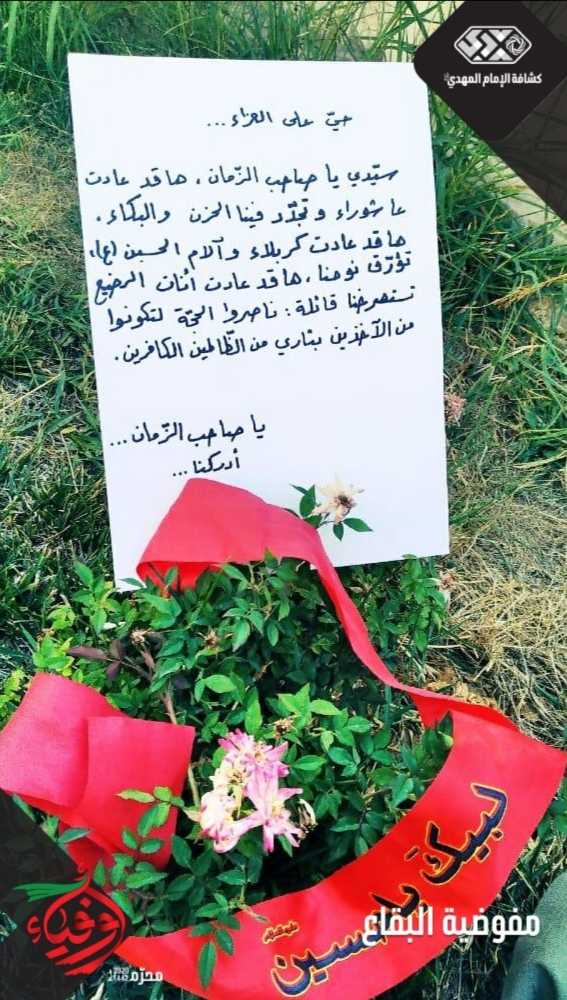 كشافة الإمام المهدي
حيّ على العزاء ...
سيّدي يا صاحب الزّمان، ها قد عادت
عاشوراء وتجدّد فينا الحزن والبكاء.
ها قد عادت كربلاء وآلام الحسين (ع)،
تؤرّق نومنا، ها قد عادت أنّات الرضيع
تستصرخنا قائلة: ناصروا الحجّة لتكونوا
من الآخذين بثاري من الظّالمين الكافرين.
يا صاحب الزّمان ...
أدركنا ...
لبيك يا حسين
مفوضية البقاع
أوفياء
محرّم